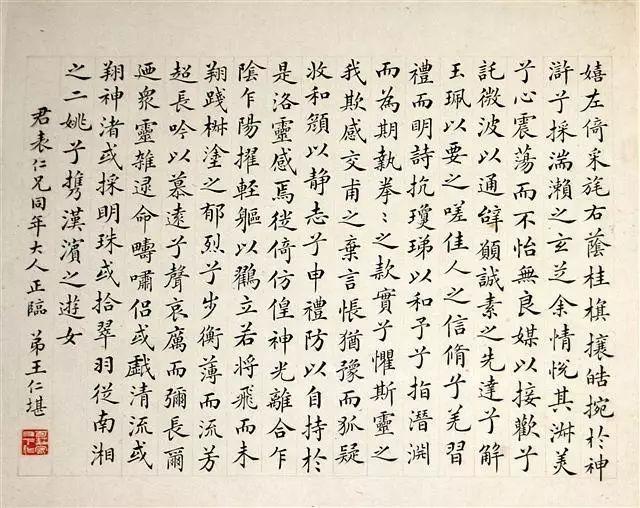 嬉左倚采旄右蔭桂旗攘皓捥於神
滸兮採湍瀨之玄芝余情悅其淑美
兮心震蕩而不怡無良媒以接歡兮
託微波以通辭願誠素之先達兮解
玉珮以要之嗟佳人之信脩兮羌習
禮而明詩抗瓊珶以和予兮指潛淵
而為期執拳〻之款實兮懼斯靈之
我欺感交甫之棄言悵猶豫而狐疑
收和顏以靜志兮申禮防以自持於
是洛靈感焉徙倚彷徨神光離合乍
陰乍陽擢輕軀以鸖立若將飛而未
翔踐椒塗之郁烈兮步衡薄而流芳
超長吟以慕遠兮聲哀厲而彌長爾
迺眾靈雜遝命疇嘯侶或戲清流或
翔神渚或採明珠或拾翠羽從南湘
之二姚兮攜漢濱之遊女
君表仁兄同年大人正臨 弟王仁堪